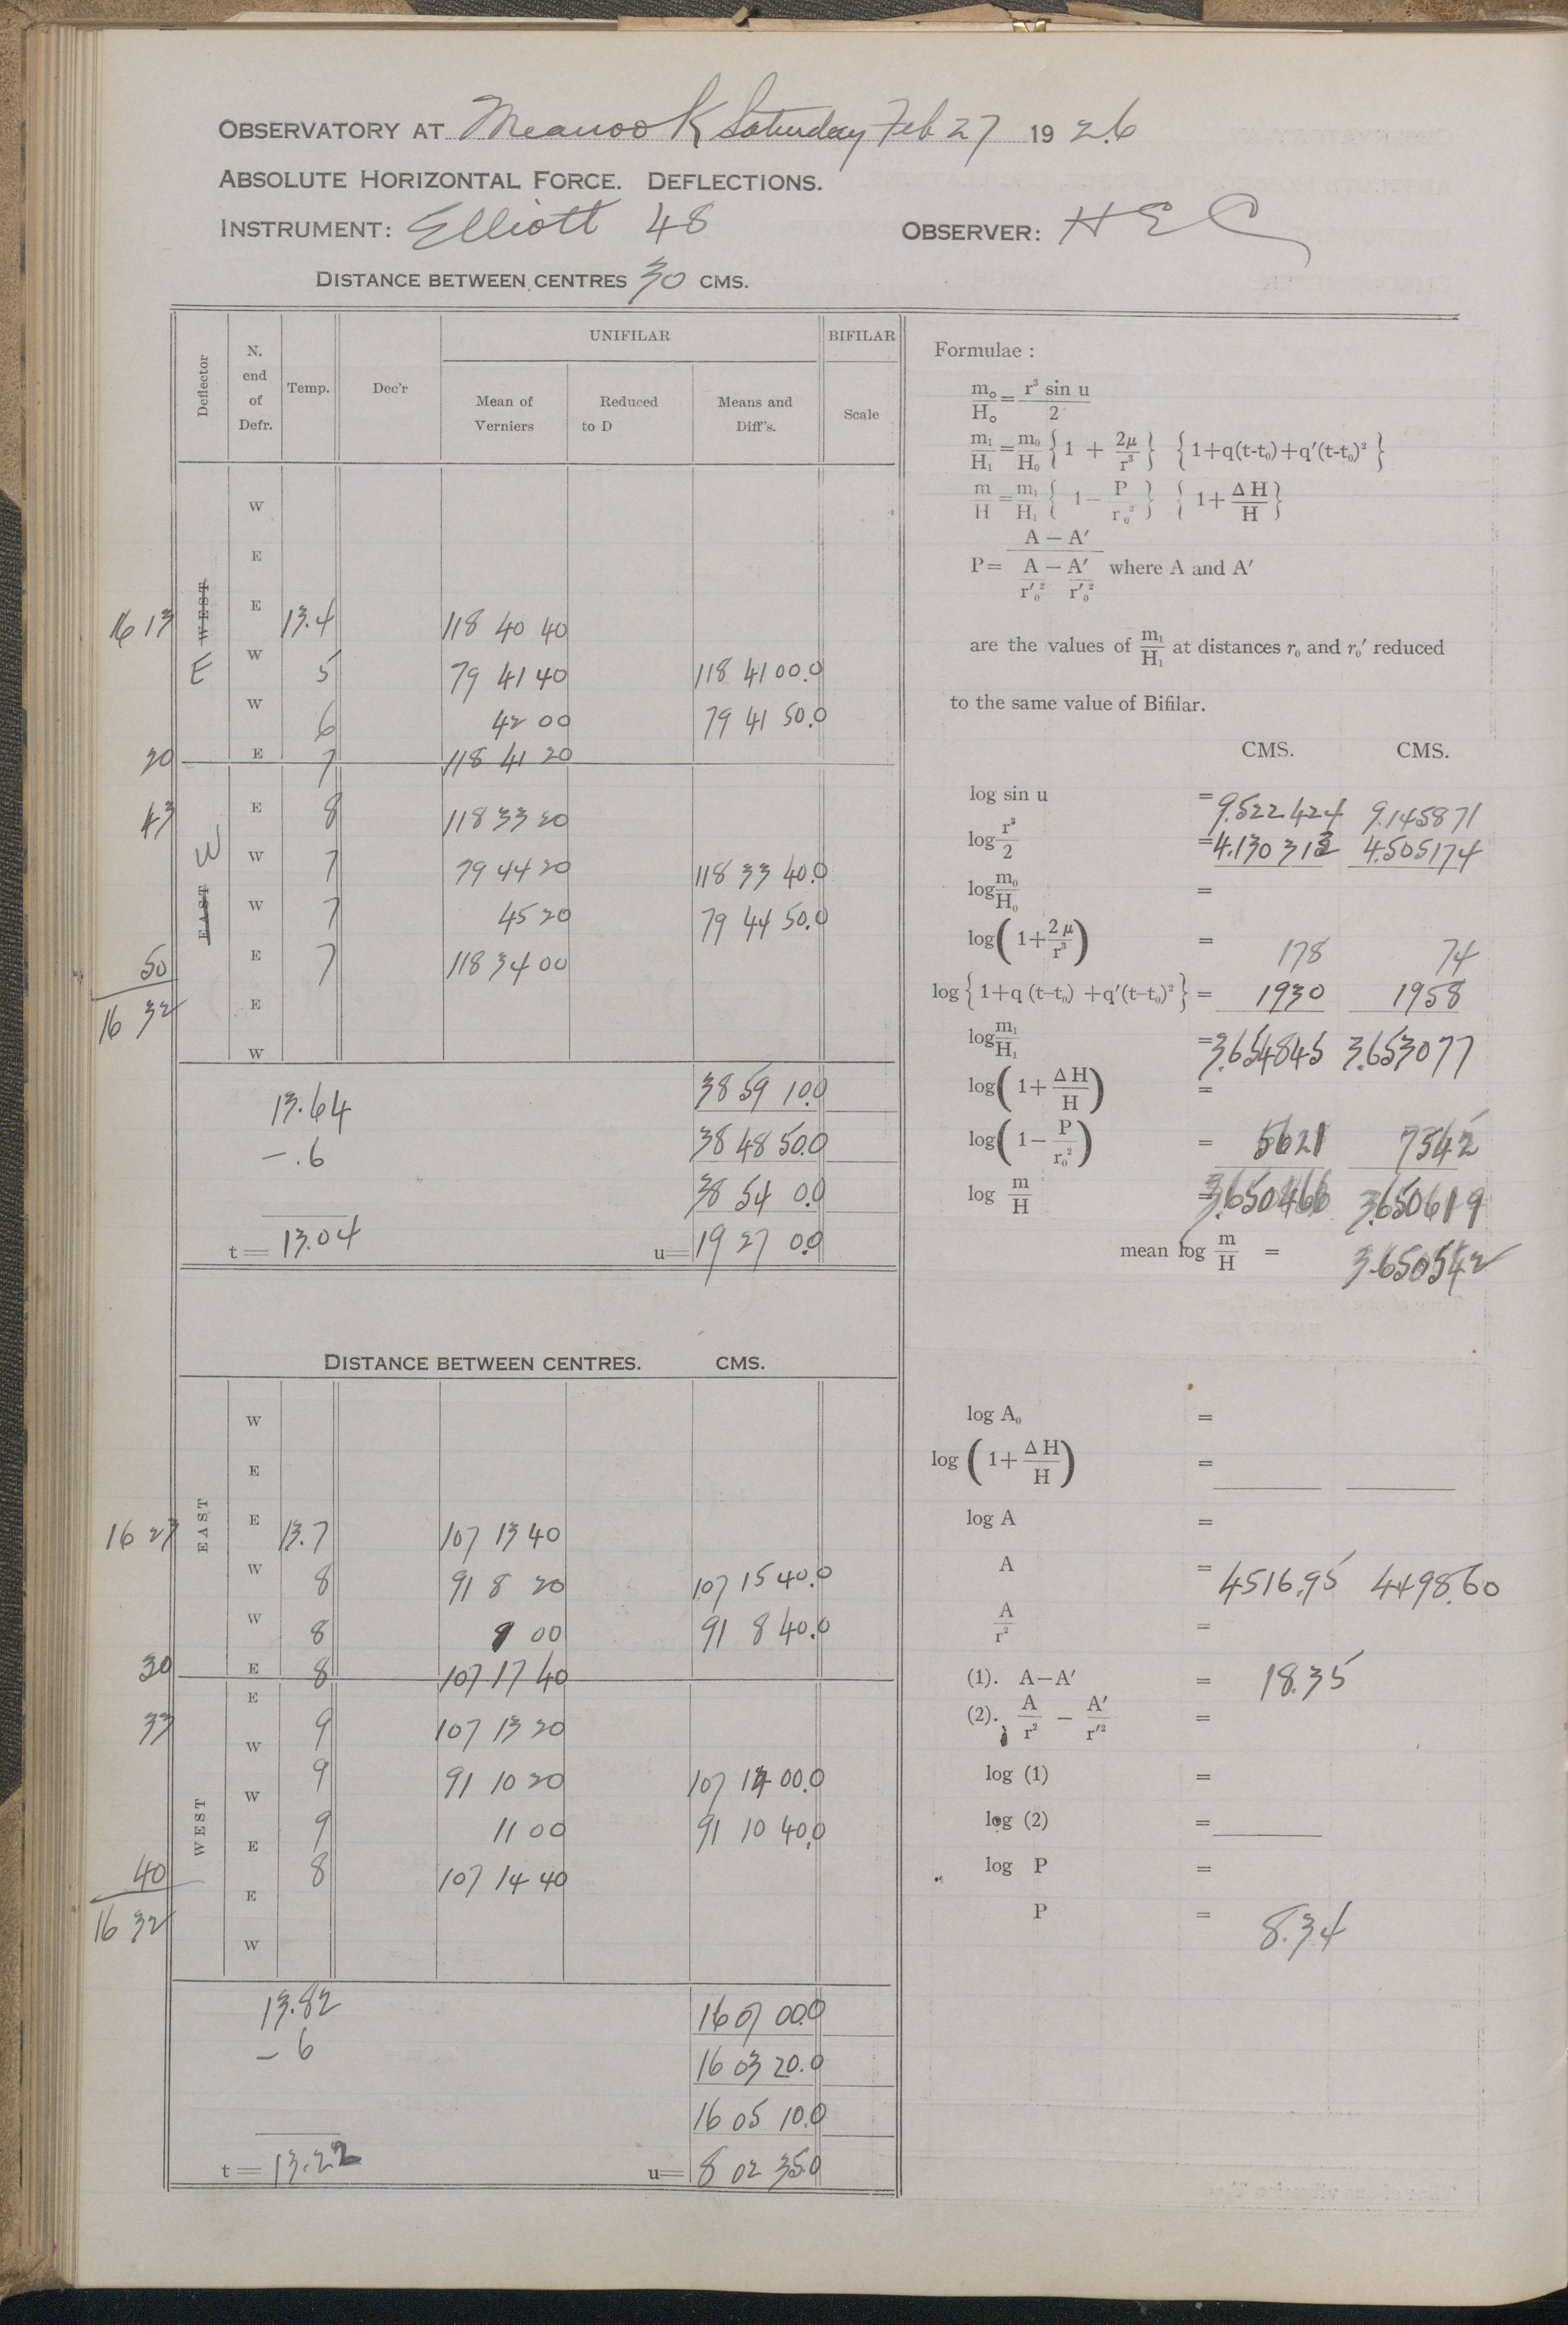 OBSERVATORY AT Meanook Saturday Feb 27 1926
ABSOLUTE HORIZONTAL FORCE. DEFLECTIONS.
INSTRUMENT: Elliott 48 OBSERVER: H E C
DISTANCE BETWEEN CENTRES 30 CMS.
Deflector N. end of Defr. Temp. Dec'r UNIFILAR BIFILAR
Mean of Verniers Reduced to D Means and Diff's. Scale
W
E
16 13 WEST E E 13.4 118 40 40
W 5 79 41 40 118 41 00.0
W 6 42 00 79 41 50.0
20 E 7 118 41 20
43 E 8 118 33 20
EAST W W 7 79 44 20 118 33 40.0
W 7 45 20 79 44 50.0
50 E 7 118 34 00
16 32 E
W
13.64 38 59 10.0
-.6 38 48 50.0
38 54 0.0
t= 13.04 u= 19 27 0.0
DISTANCE BETWEEN CENTRES. CMS.
W
E
16 27 EAST E 13.7 107 13 40
W 8 91 8 20 107 15 40.0
W 8 9 00 91 8 40.0
30 E 8 107 17 40
33 E 9 107 13 20
W 9 91 10 20 107 14 00.0
WEST W 9 11 00 91 10 40.0
40 E 8 107 14 40
16 32 E
W
13.82 16 07 00.0
- 6 16 03 20.0
16 05 10.0
t= 13.22 u= 8 02 35.0
Formulae :
m₀/H₀ = r³ sin u / 2
m₁/H₁ = m₀/H₀ {1 + 2μ/r³} {1+q(t-t₀)+q′(t-t₀)²}
m/H = m₁/H₁ {1− P/r₀²} {1+ ΔH/H}
P= A − A′ / A/r′₀² − A′/r′₀² where A and A′
are the values of m₁/H₁ at distances r₀ and r₀′ reduced
to the same value of Bifilar.
CMS. CMS.
log sin u = 9.522424 9.145871
log r³/2 = 4.130313 4.505174
log m₀/H₀ =
log(1+ 2μ/r³) = 178 74
log{1+q (t-t₀) +q′(t-t₀)²} = 1930 1958
log m₁/H₁ = 3.654845 3.653077
log(1+ ΔH/H) =
log(1− P/r₀²) = 5621 7542
log m/H = 3.650466 3.650619
mean log m/H = 3.650542
log A₀ =
log (1+ ΔH/H) =
log A =
A = 4516.95 4498.60
A/r² =
(1). A−A′ = 18.35
(2). A/r² − A′/r′² =
log (1) =
log (2) =
log P =
P = 8.34